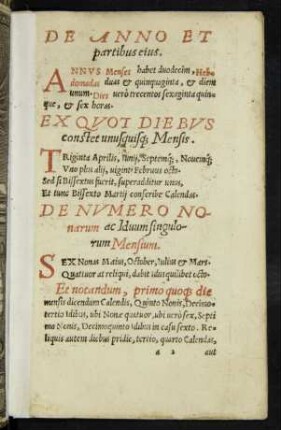 DE ANNO ET
partibus eius.
ANNVS Menses habet duodecim, Heb-
domadas duas & quinquaginta, & diem
unum. Dies uerò trecentos sexaginta quin-
que, & sex horas.
EX QVOT DIEBVS
constet unusquisq; Mensis.
TRiginta Aprilis, Iunij, Septemq;, Nouemq;
Vno plus alij, uiginti Februus octo.
Sed si Bissextus fuerit, superadditur unus,
Et tunc Bissexto Martij conscribe Calendas.
DE NVMERO NO-
narum ac Iduum singulo-
rum Mensium.
SEX Nonas Maius, October, Iulius & Mars.
Quattuor at reliqui, dabit idus quilibet octo.
Et notandum, primo quoq; die
mensis dicendum Calendis, Quinto Nonis, Decimo-
tertio Idibus, ubi Nonæ quatuor, ubi uerò sex, Septi
mo Nonis, Decimoquinto Idibus in casu sexto. Re-
liquis autem diebus pridie, tertio, quarto Calendas,
a 2 aut